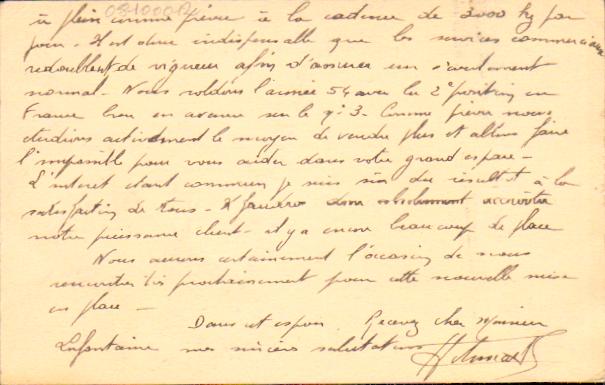 à plein comme prévu à la cadence de 3000 kg par
jour - Il est donc indispensable que les services commerciaux
redoublent de vigueur afin d'assurer un écoulement
normal - Nous soldons l'année 54 avec la 2e position en
France bien en avance sur le n° 3 - Comme prévu nous
étudions activement le moyen de vendre plus et allons faire
l'impossible pour vous aider dans votre grand espace -
L'intérêt étant commun je suis sûr du résultat à la
satisfaction de tous - Il faudra accroître
notre puissance client - il y a encore beaucoup de place
Nous aurons certainement l'occasion de nous
rencontrer prochainement pour cette nouvelle mise
en place -
Dans cet espoir Recevez cher Monsieur
Lafontaine mes sincères salutations